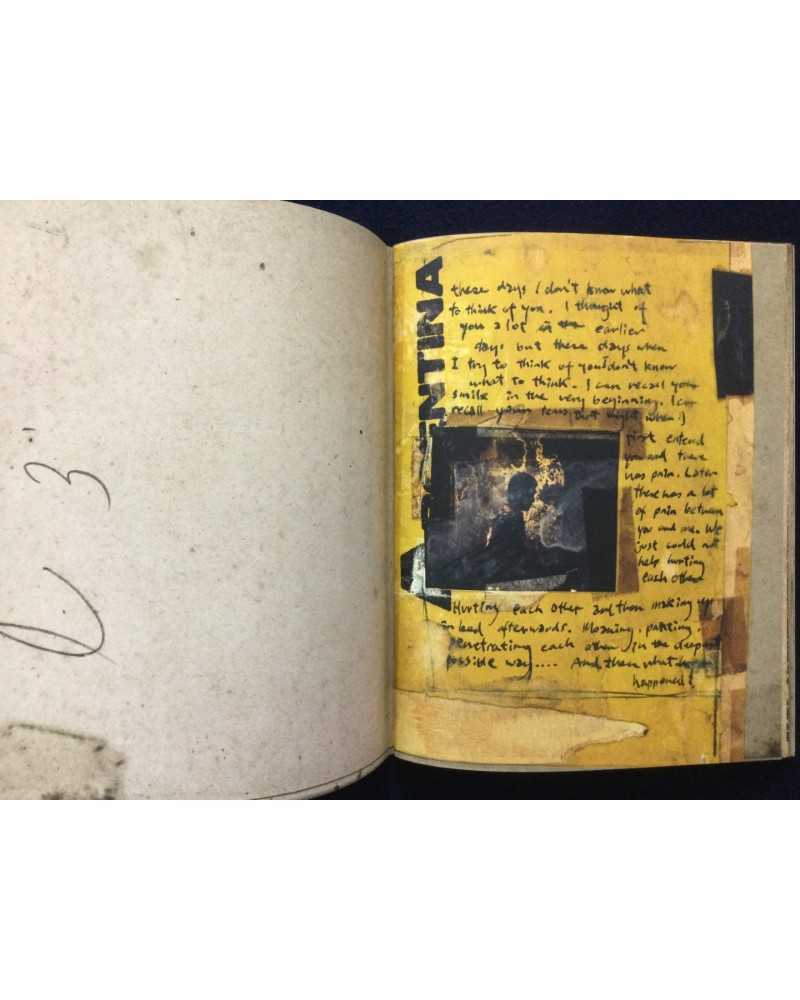 3
ARGENTINA
these days I don't know what
to think of you. I thought of
you a lot in the earlier
days but these days when
I try to think of you I don't know
what to think. I can recall your
smile in the very beginning. I can
recall your tears that night when I
first entered
you and there
was pain. Later
there was a lot
of pain between
you and me. We
just could not
help hurting
each other
Hurting each other and then making up
in bed afterwards. Moaning, panting,
penetrating each other in the deepest
possible way.... And then what
happened?